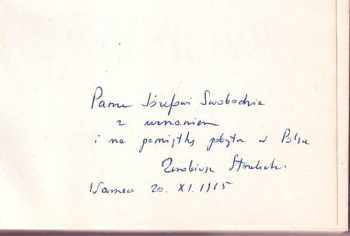 Panu Józefowi Swobodzie
z uznaniem
i na pamiątkę pobytu w Polsce
Zenobiusz Strzelecki
20. XI. 1965